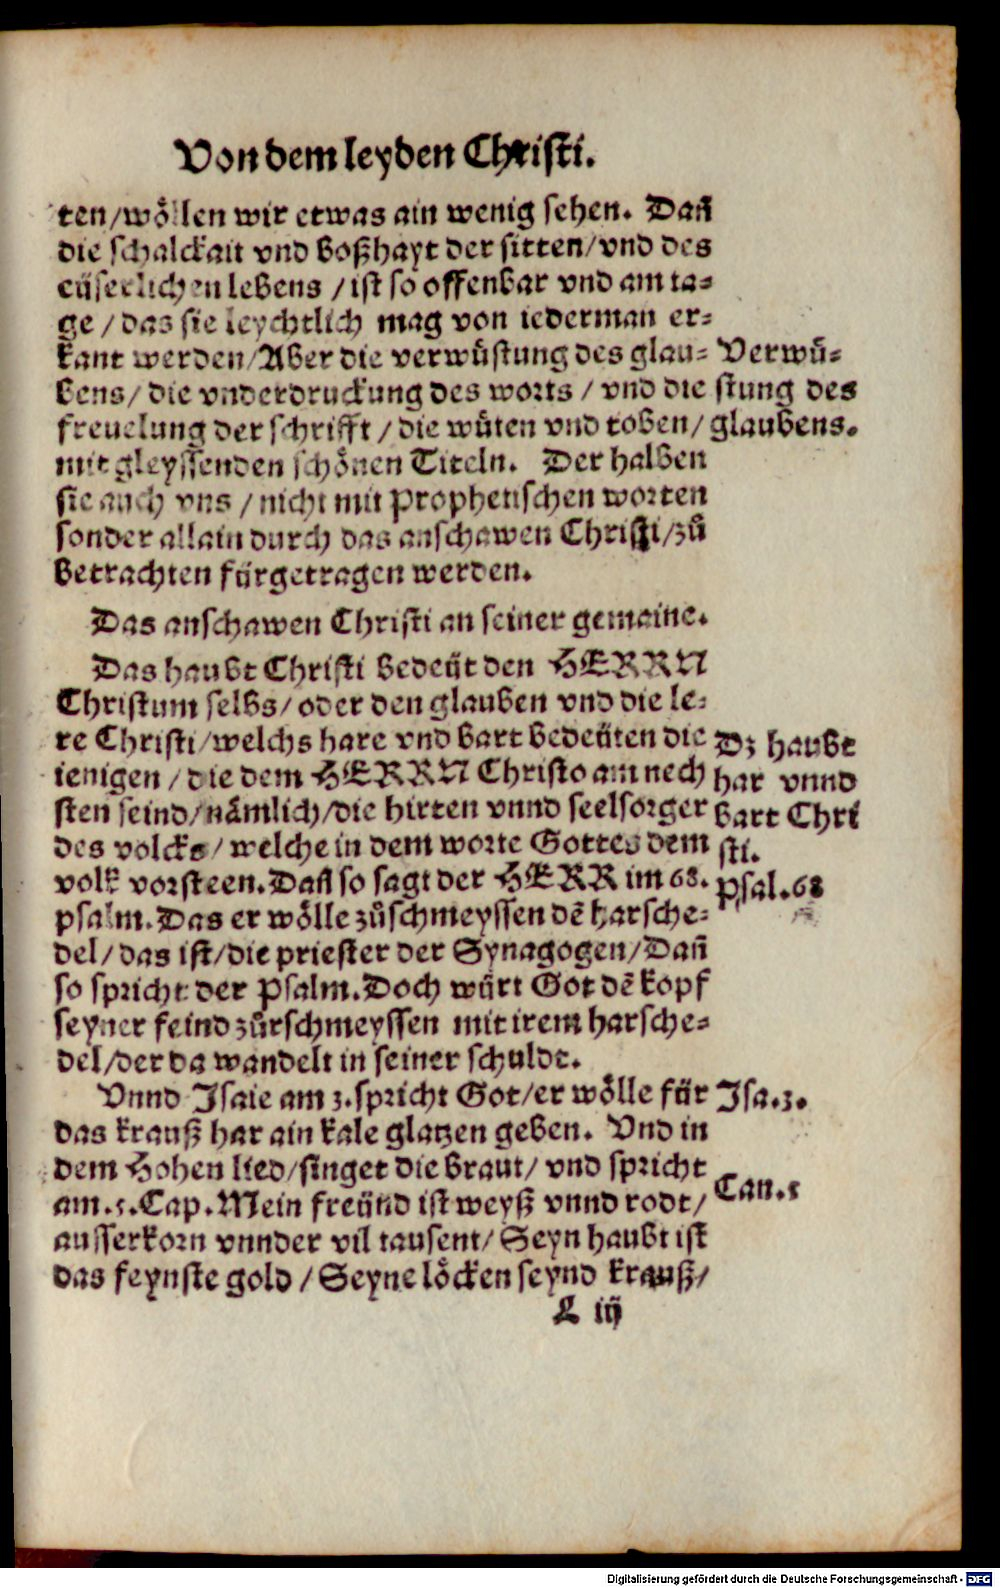 Von dem leyden Christi.
ten/wöllen wir etwas ain wenig sehen. Dañ
die schalckait vnd boßhayt der sitten/vnd des
eüserlichen lebens /ist so offenbar vnd am ta=
ge /das sie leychtlich mag von iederman er=
kant werden/Aber die verwůstung des glau=
bens/ die vnderdruckung des worts / vnd die
freuelung der schrifft /die wůten vnd toben/
mit gleyssenden schönen Titeln. Der halben
sie auch vns /nicht mit Prophetischen worten
sonder allain durch das anschawen Christi/zů
betrachten fürgetragen werden.
Verwů=
stung des
glaubens.
Das anschawen Christi an seiner gemaine.
Das haubt Christi bedeüt den HERRN
Christum selbs/oder den glauben vnd die le=
re Christi/welchs hare vnd bart bedeüten die
ienigen /die dem HERRN Christo am nech
sten seind/nämlich/die hirten vnnd seelsorger
des volcks/ welche in dem worte Gottes dem
volk vorsteen. Dañ so sagt der HERR im 68.
psalm. Das er wölle zůschmeyssen dē harsche=
del/das ist/die priester der Synagogen/Dañ
so spricht der Psalm. Doch würt Got dē kopf
seyner feind zůrschmeyssen mit irem harsche=
del/der da wandelt in seiner schuldt.
Dz haubt
har vnnd
bart Chri
sti.
Psal.68
Vnnd Isaie am 3.spricht Got/er wölle für
das krauß har ain kale glatzen geben. Vnd in
dem Hohen lied/singet die braut/ vnd spricht
am.5.Cap.Mein freünd ist weyß vnnd rodt/
ausserkorn vnnder vil tausent/ Seyn haubt ist
das feynste gold /Seyne löcken seynd krauß/
Isa.3.
Can.5
L iij
Digitalisierung gefördert durch die Deutsche Forschungsgemeinschaft - DFG